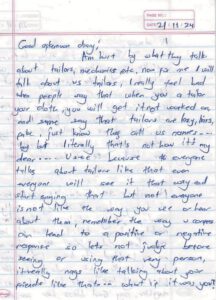 PAGE NO.:
DATE: 21-11-24
Good afternoon diary!
I'm hurt by what they talk
about tailors, mechanics etc. now for me I will
talk about us tailors, I really feel bad
when people say that when you a tailor
your cloth you will get it not worked on
and some say that tailors are lazy, liars,
etc, just know they call us names...
but literally that's not how it's my
dear.... because if everyone
talks about tailors like that even
everyone will see it that way and
start saying that but not everyone
is not like the way you see or hear
about them, remember the way u comes
can lead to a positive or negative
response so lets not judge before
seeing or using that very person,
it really nags like talking about your
friends like thats... what if it was you?